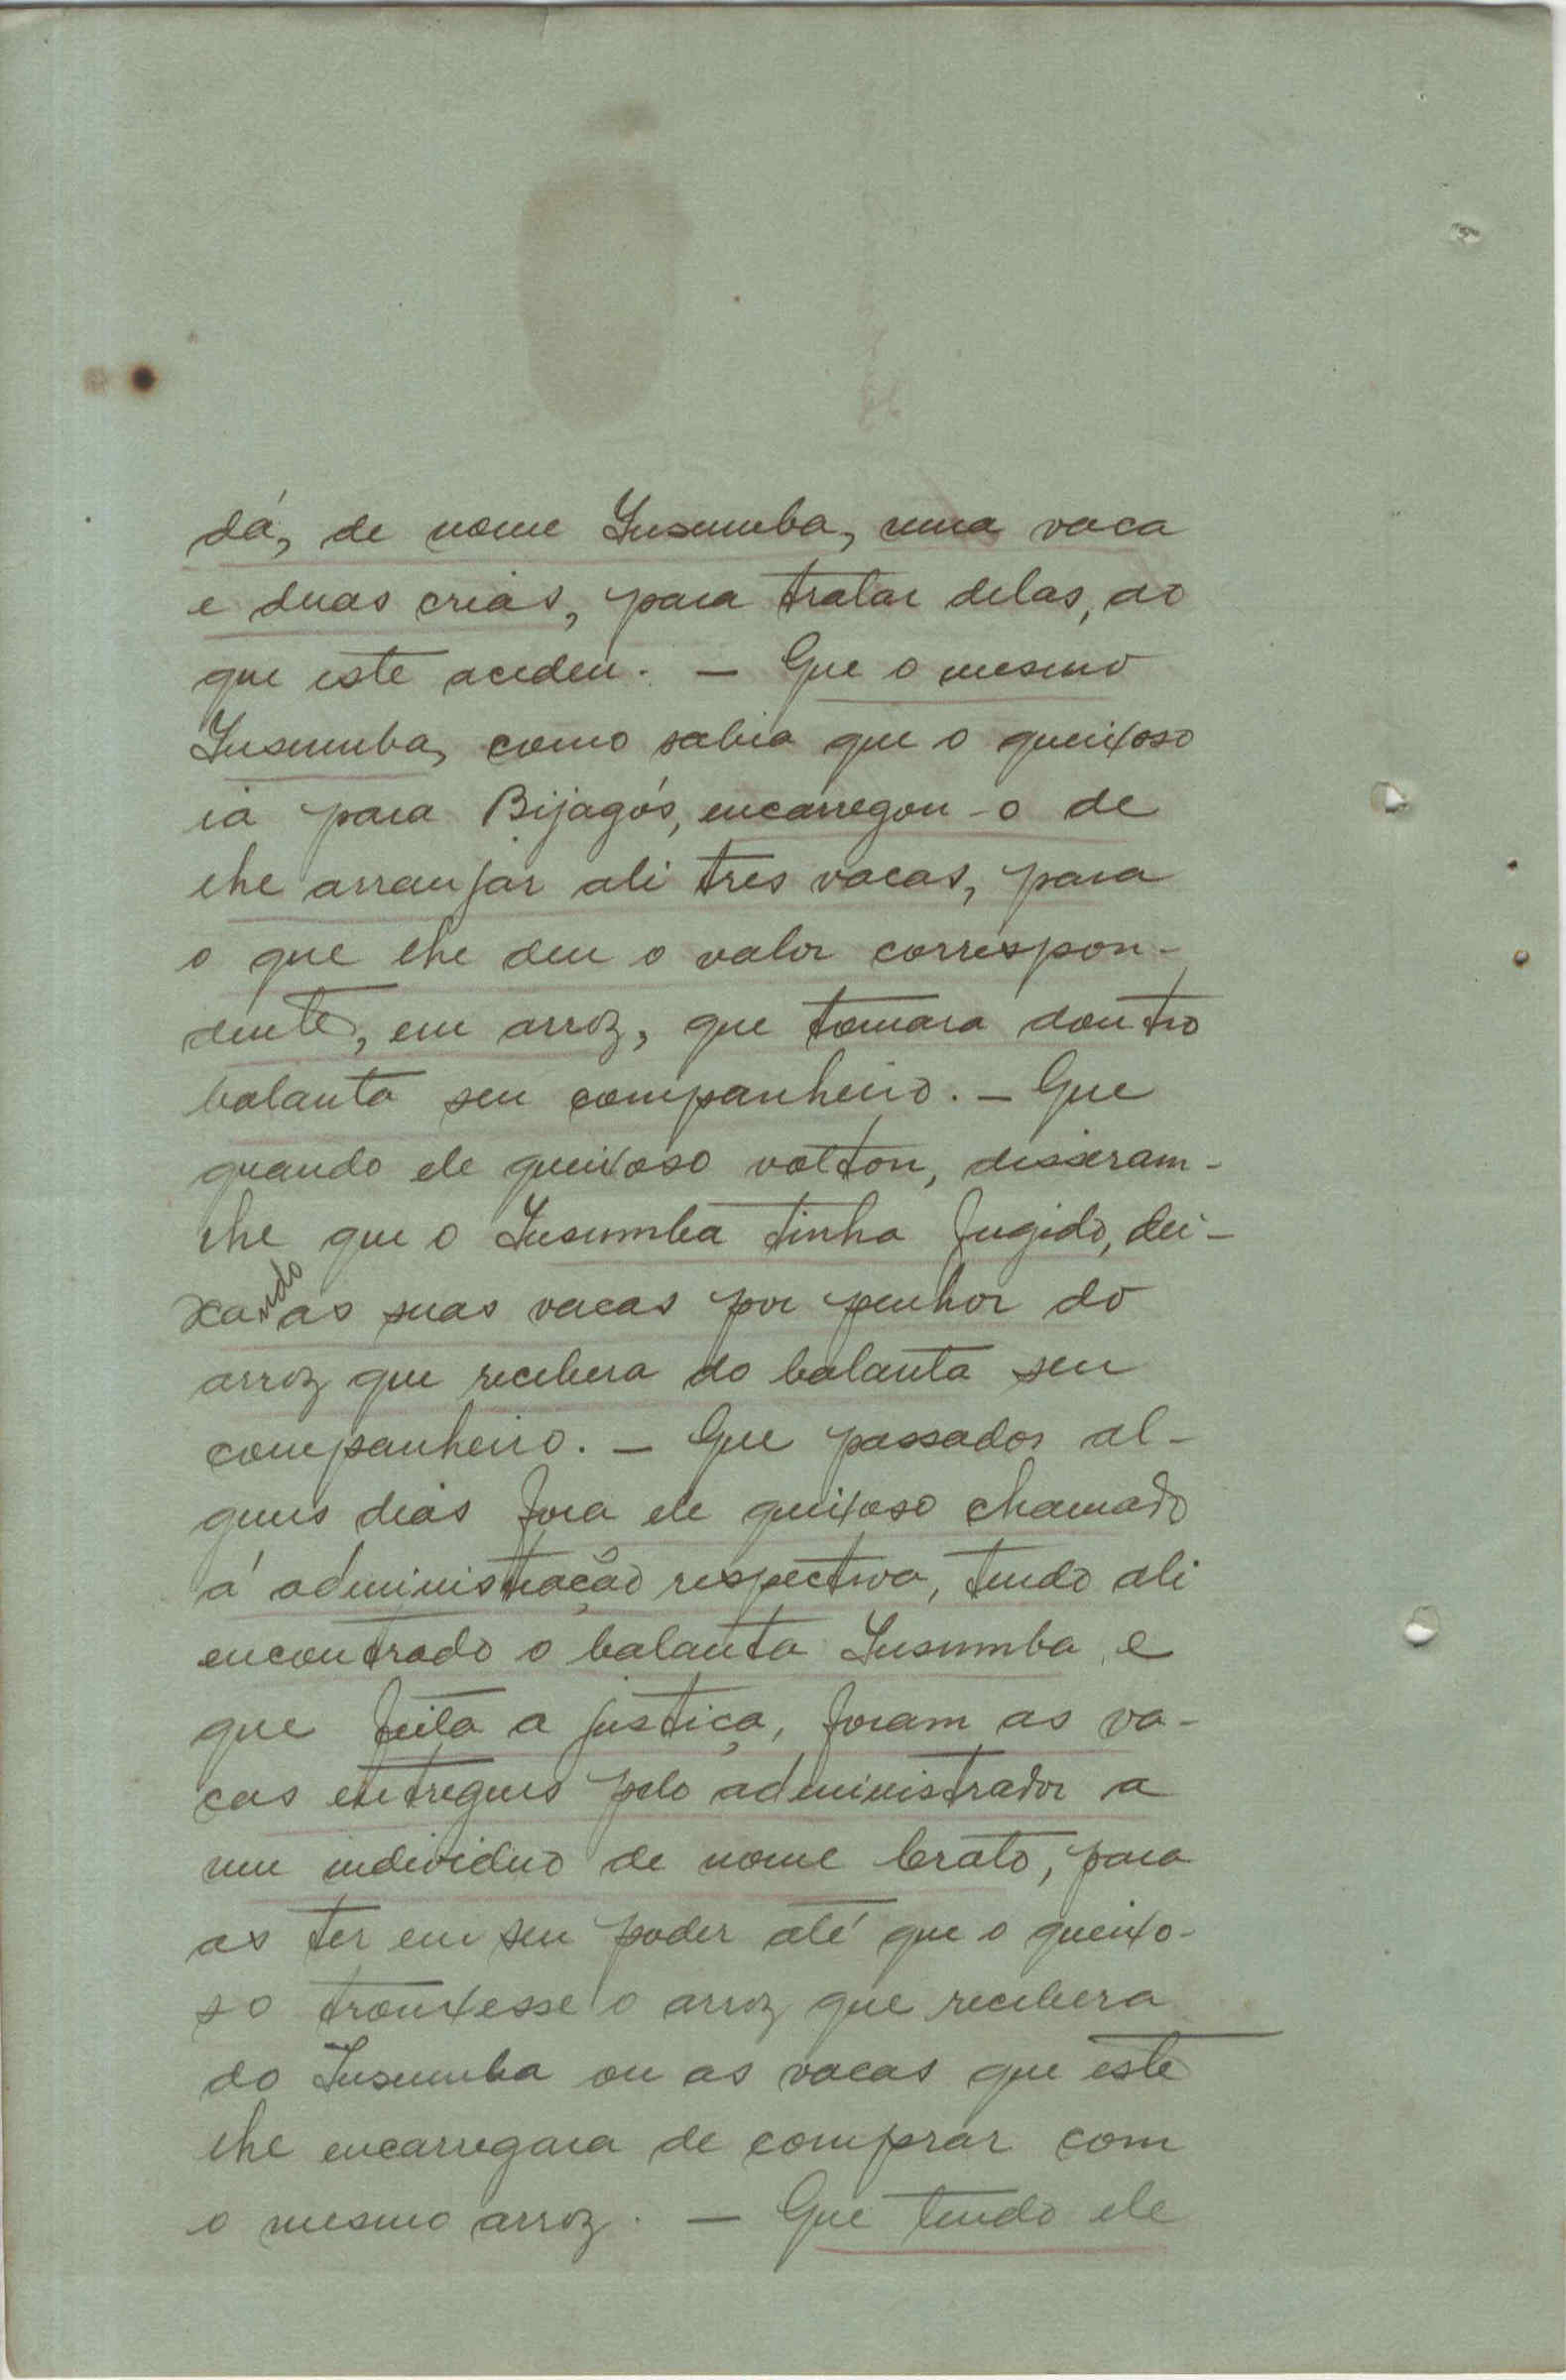 dá, de nome Susumba, uma vaca
e duas crias, para tratar delas, ao
que este acedeu. — Que o mesmo
Susumba, como sabia que o queixoso
ia para Bijagós, encarregou-o de
lhe arranjar ali tres vacas, para
o que lhe deu o valor correspon-
dente, em arroz, que tomara doutro
balanta seu companheiro. — Que
quando ele queixoso voltou, disseram-
lhe que o Susumba tinha fugido, dei-
xando as suas vacas por penhor do
arroz que recebera do balanta seu
companheiro. — Que passados al-
guns dias fora ele queixoso chamado
á administração respectiva, tendo ali
encontrado o balanta Susumba, e
que feita a justiça, foram as va-
cas entregues pelo administrador a
um individuo de nome Crato, para
as ter em seu poder até que o queixo-
so trouxesse o arroz que recebera
do Susumba ou as vacas que este
lhe encarregara de comprar com
o mesmo arroz. — Que tendo ele